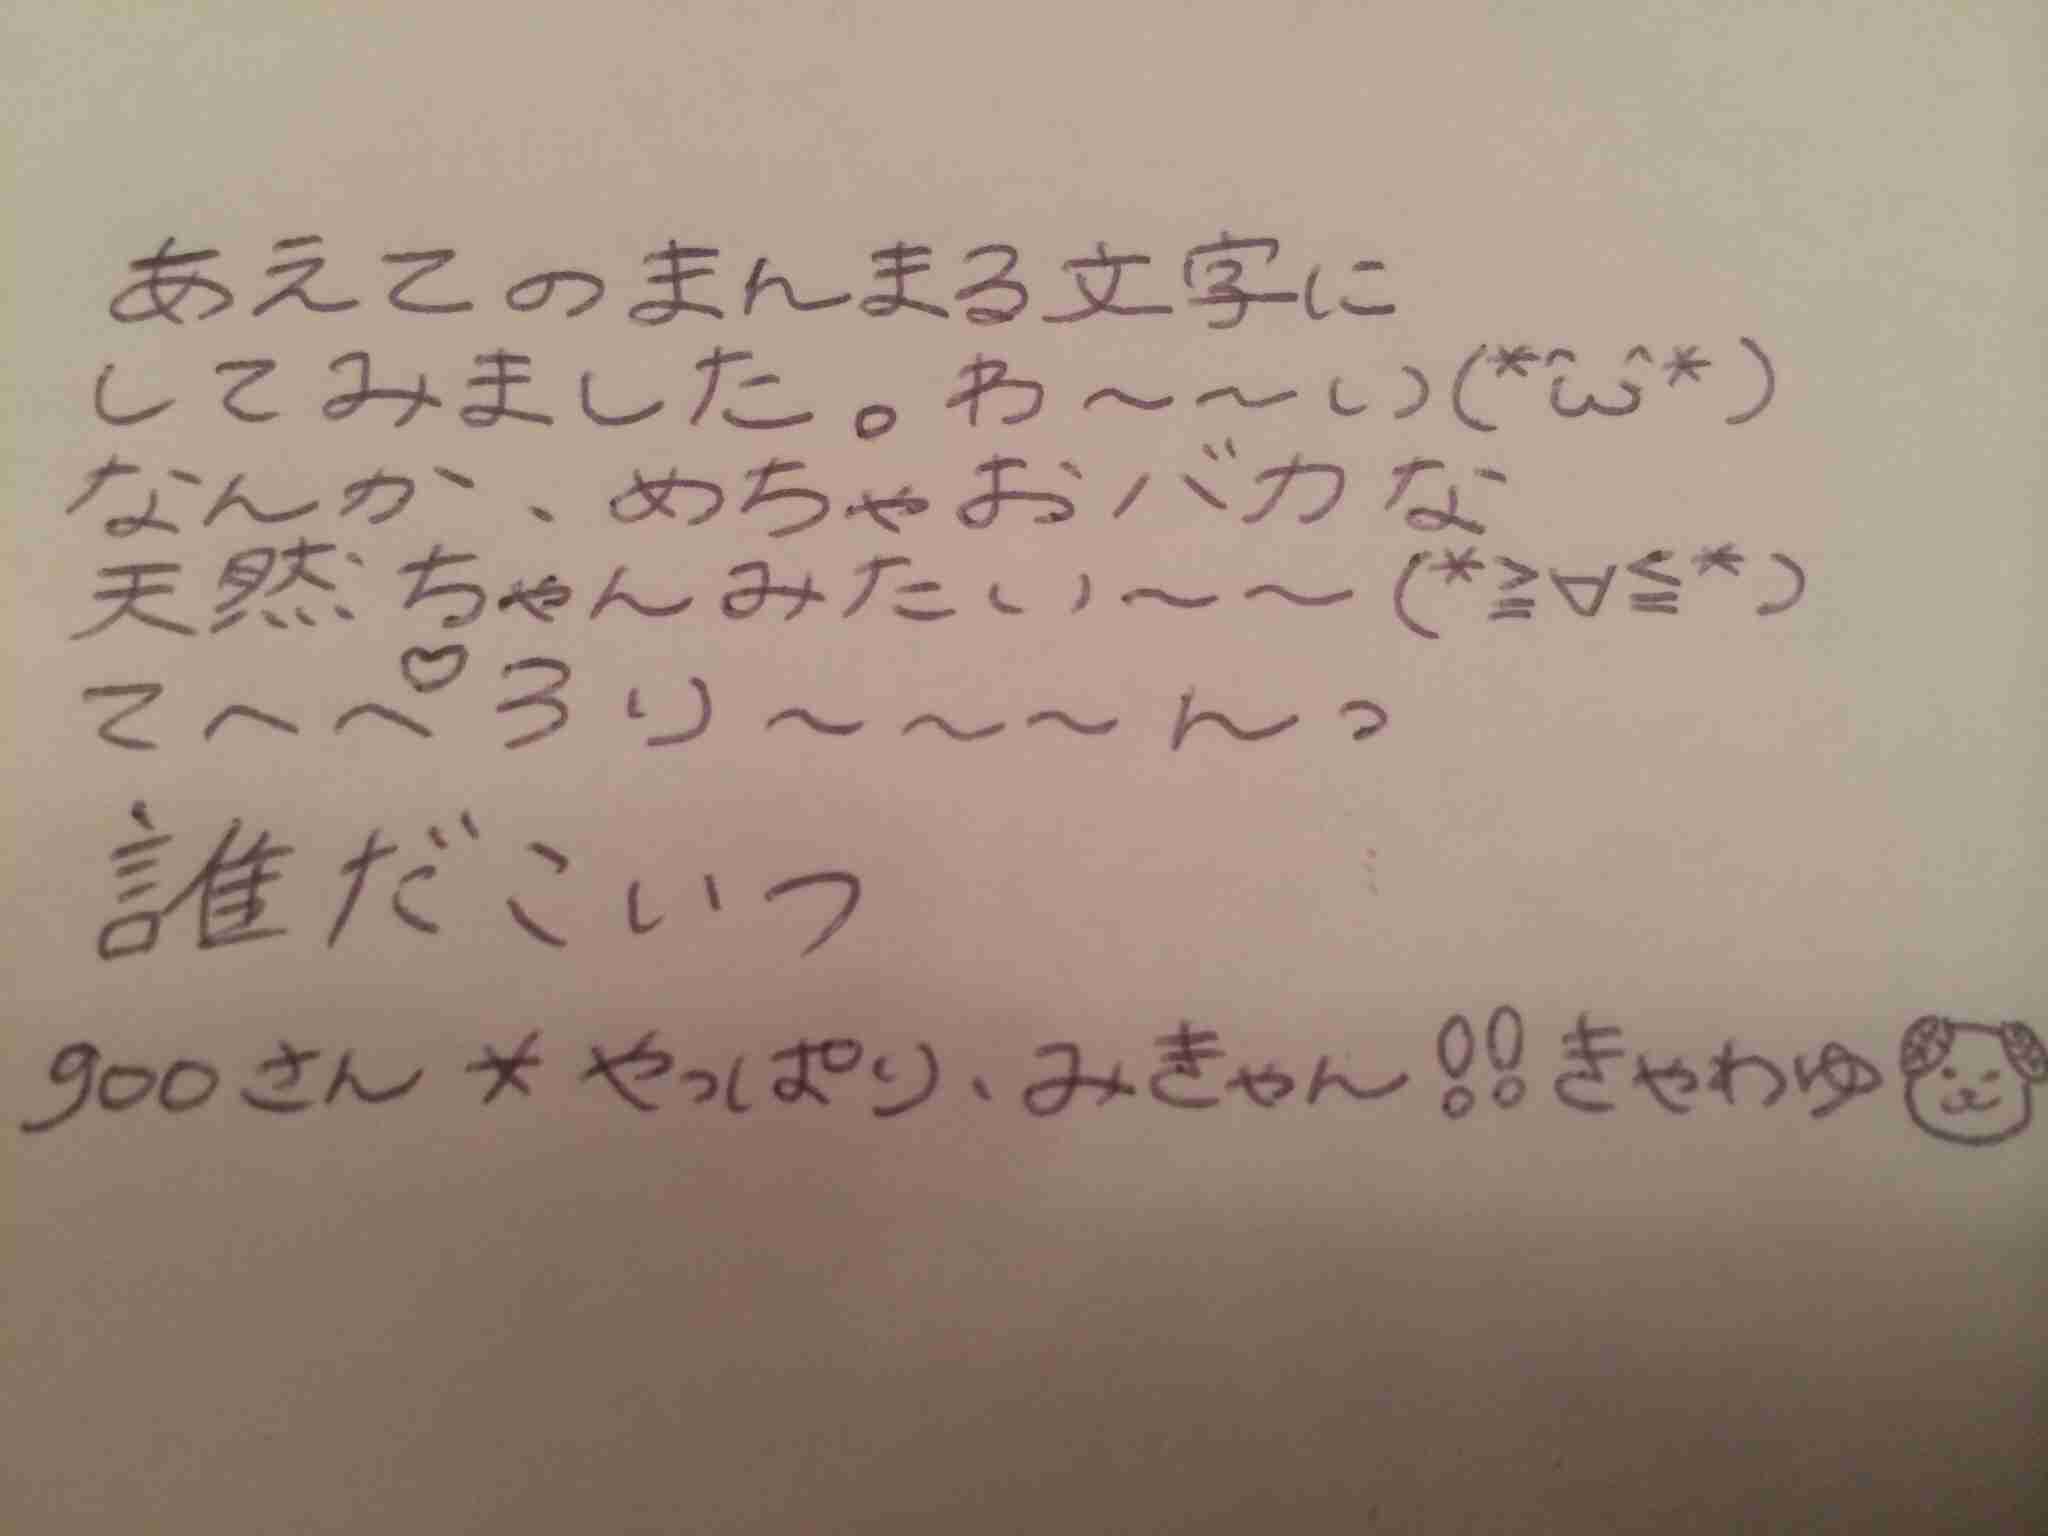 あえてのまんまる文字に
してみました。わ〜〜い(*^ω^*)
なんか、めちゃおバカな
天然ちゃんみたい〜〜(*≧∀≦*)
てへぺ♡ろり〜〜〜んっ
誰だこいつ
900さん*やっぱり、みきゃん!!きゃわゆ